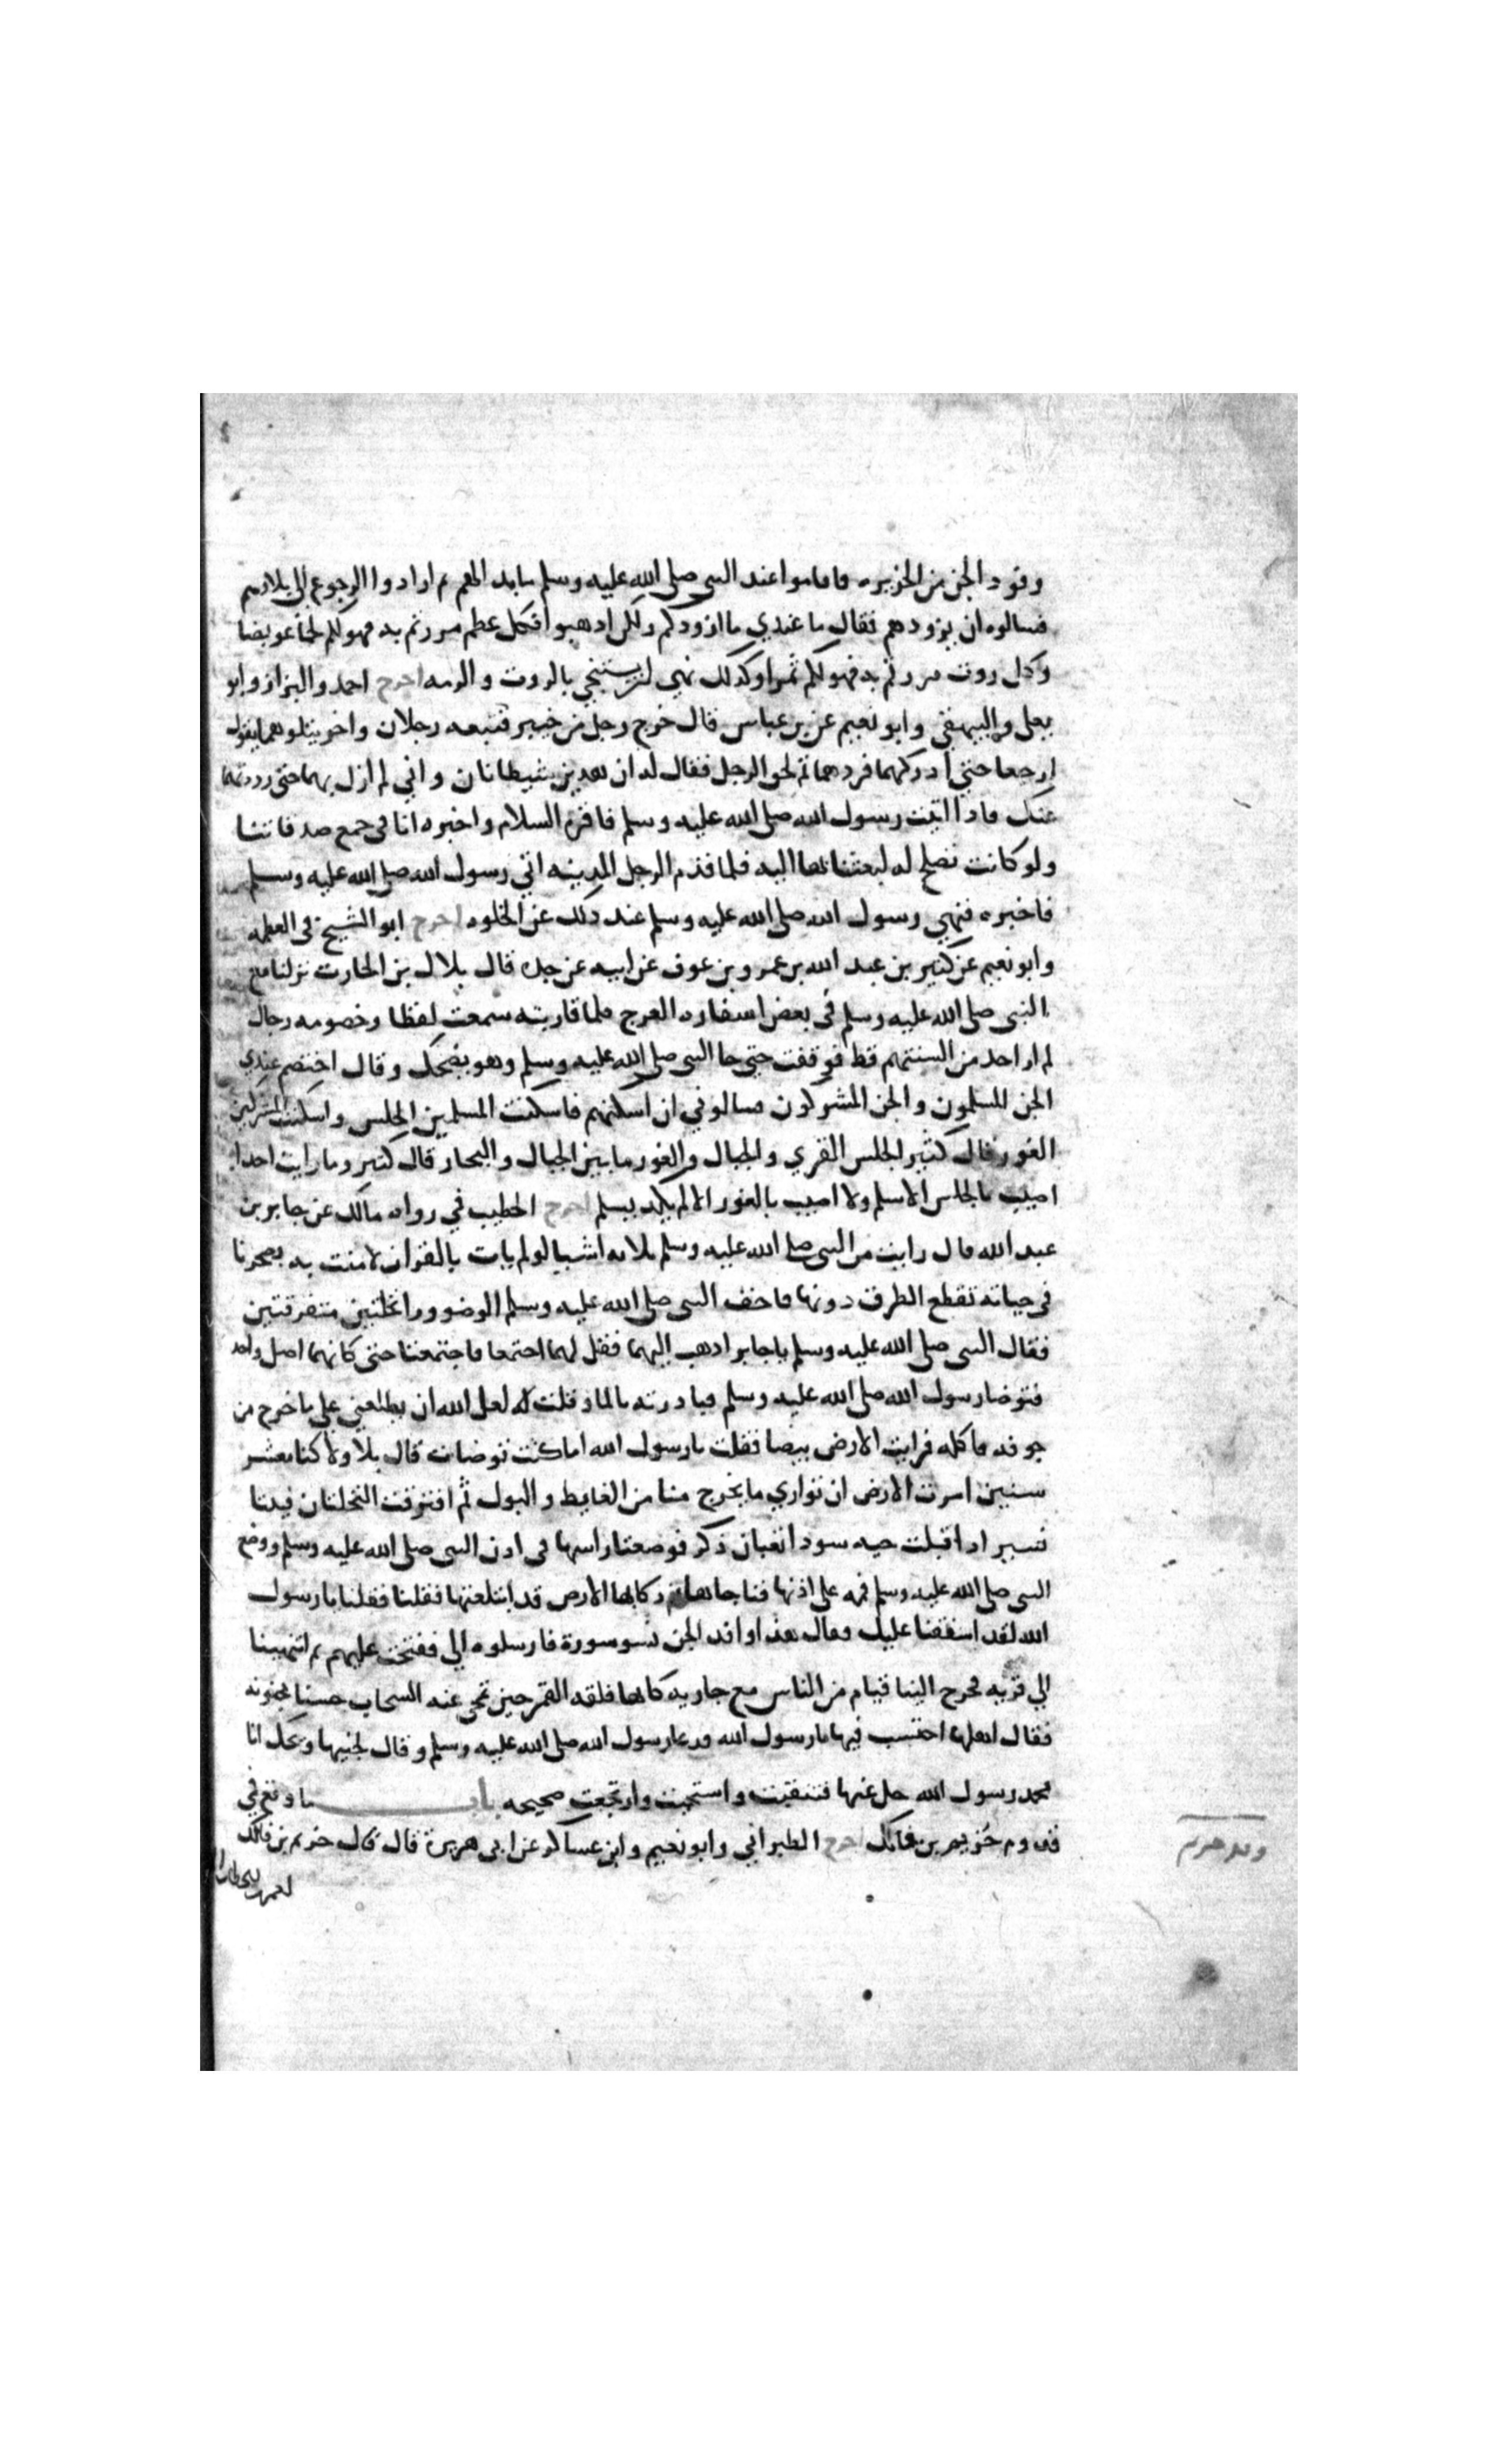 وفود الجن من الجزيره فاقاموا عند النبي صلى الله عليه وسلم ما بدا لهم ثم ارادوا الرجوع الى بلادهم
فسالوه ان يزودهم فقال ما عندي ما ازودكم ولكن ادهبوا فكل عظم مررتم به فهو لكم لحما عريضا
وكل روث مررتم به فهو لكم تمرا وكدلك نهي ان يستنجي بالروث والرمه اخرج احمد والبزار وابو
يعلى والبيهقي وابو نعيم عن بن عباس قال خرج رجل من خيبر فتبعه رجلان واخر يتلوهما يقول
ارجعا حتى ادركهما فردهما ثم لحق الرجل فقال له ان هدين شيطانان واني لم ازل بهما حتى رددتهما
عنك فادا اتيت رسول الله صلى الله عليه وسلم فاقره السلام واخبره انا في جمع صدقاتنا
ولو كانت تصلح له لبعثنا بها اليه فلما قدم الرجل المدينه اتى رسول الله صلى الله عليه وسلم
فاخبره فنهى رسول الله صلى الله عليه وسلم عند دلك عن الخلوه اخرج ابو الشيخ في العظمه
وابو نعيم عن كثير بن عبد الله بن عمرو بن عوف عن ابيه عن جده قال بلال بن الحارث نزلنا مع
النبي صلى الله عليه وسلم في بعض اسفاره العرج فلما قاربته سمعت لغطا وخصومه رجال
لم ار احد من السنتهم قط فوقفت حتى جا النبي صلى الله عليه وسلم وهو يضحك وقال اختصم عندي
الجن المسلمون والجن المشركون فسالوني ان اسكنهم فاسكنت المسلمين الجلس واسكنت المشركين
الغور قال كثير الجلس القري والجبال والغور ما بين الجبال والبحار قال كثير وما رايت احدا
اصيب بالجلس الا سلم ولا اصيب بالغور الا لم يكد يسلم اخرج الخطيب في رواه مالك عن جابر بن
عبد الله قال رايت من النبي صلى الله عليه وسلم ثلاثه اشيا لو لم يات بالقران لامنت به تصحرنا
في جبانه تقطع الطرق دونها فاخذ النبي صلى الله عليه وسلم الوضو وراى نخلتين متفرقتين
فقال النبي صلى الله عليه وسلم يا جابر ادهب اليهما فقل لهما اجتمعا فاجتمعتا حتى كانهما اصل واحد
فتوضا رسول الله صلى الله عليه وسلم فبادرته بالما وقلت له لعل الله ان يطلعني على ما خرج من
جوفه فاكله فرايت الارض بيضا فقلت يا رسول الله اما كنت توضات قال بلا ولاكنا معشر
سنبين امرت الارض ان تواري ما يخرج منا من الغايط والبول ثم افترقت النخلتان فبينا
نسير ادا اقبلت حيه سودا ثعبان ذكر فوضعت راسها في ادن النبي صلى الله عليه وسلم ووضع
النبي صلى الله عليه وسلم فمه على اذنها فناجاها ثم لكانما الارض قد ابتلعتها فقلنا فقلنا يا رسول
الله لقد اشفقنا عليك وقال هذا وافد الجن نسو سورة فارسلوه الي ففتحت عليهم ثم انتهينا
الي قريه فخرج الينا قيام من الناس مع جاريه كانها فلقه القمر حين تمحى عنه السحاب حسنا مجنونه
فقال اهلها احتسب فيها يا رسول الله فدعا رسول الله صلى الله عليه وسلم وقال لجنيها ويحك انا
محمد رسول الله حل عنها فتنقبت واستحيت وارتجعت صحيحه باب ما وقع في
قدوم خزيم بن فاتك اخرج الطبراني وابو نعيم وابن عساكر عن ابي هريرة قال قال خزيم بن فاتك